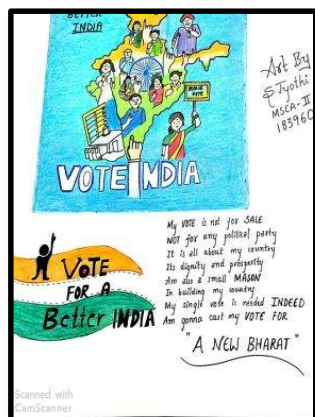 BETTER
INDIA
Art By
S Jyothi
MSCA-II
183960
VOTE
VOTE INDIA
My VOTE is not for SALE
NOT for any political party
It is all about my country
Its dignity and prosperity
Am also a small MASON
In building my country
My single vote is needed INDEED
Am gonna cast my VOTE FOR
"A NEW BHARAT"
VOTE
FOR A
Better INDIA
Scanned with
CamScanner